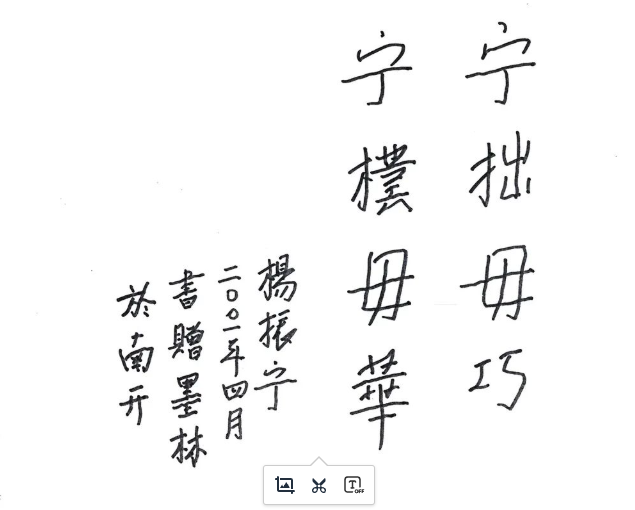 宁拙毋巧
宁樸毋華
楊振宁
二〇〇一年四月
書贈墨林
於南开
T OFF